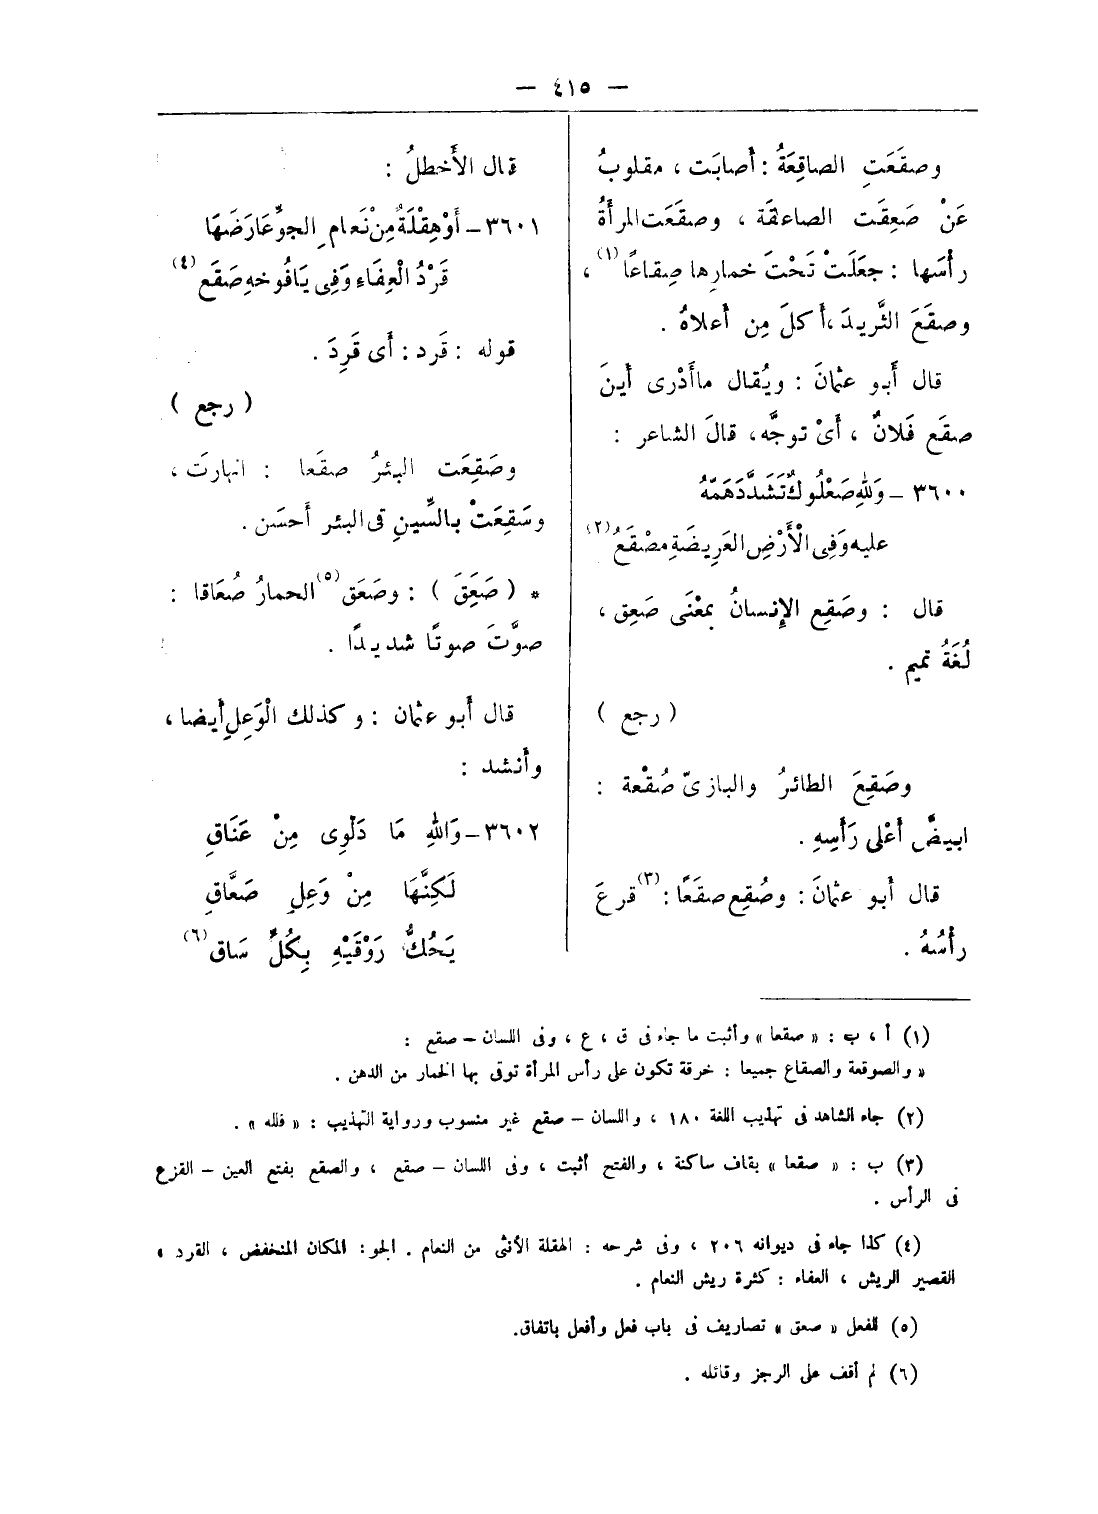 — ٤١٥ —
وصقَعَتِ الصاقِعَةُ : أصابَت ، مقلوبُ
عَنْ صَعِقَت الصاعقَة ، وصقَعَت المرأَةُ
رأسَها : جعلَتْ تَحْتَ خمارِها صِقاعًا (١) ،
وصقَعَ الثَّريدَ ، أكلَ مِن أعلاهُ .
قال أَبو عثمانَ : ويُقال ما أَدْرى أَينَ
صقَع فَلانٌ ، أَىْ توجَّه ، قالَ الشاعر :
٣٦٠٠ – وَلِلهِ صَعْلُوكٌ تَشَدَّدَ هَمّهُ
عليه وَفِى الْأَرْضِ العَرِيضَةِ مصْقَعُ (٢)
قال : وصَقِع الإِنسانُ بمعْنَى صَعِق ،
لُغَةُ تميم .
( رجع )
وصَقِعَ الطائرُ والبازىّ صُقْعة :
ابيضَّ أَعْلى رَأسِهِ .
قال أَبو عثمانَ : وصُقِع صقَعًا : (٣) قرعَ
رأسُهُ .
قال الأَخطلُ :
٣٦٠١ – أَوْ هِقْلَةٌ مِنْ نَعامِ الجوِّ عَارَضَهَا
قَرْدُ الْعِفَاءِ وَفِى يَافُوخهِ صَقَع (٤)
قوله : قَرد : أَى قَرِدَ .
( رجع )
وصَقِعَت البئرُ صقَعا : انهارتَ ،
وسَقِعَتْ بالسِّينِ فى البئر أَحسَن .
* ( صَعَِقَ ) : وصَعَق (٥) الحمارُ صُعَاقا :
صوَّتَ صوتًا شديدًا .
قال أَبو عثمان : وكذلك الْوَعِلِ أَيضا ،
وأَنشد :
٣٦٠٢ – وَاللهِ مَا دَلْوِى مِنْ عَنَاقِ
لَكِنَّهَا مِنْ وَعِلٍ صَعَّاقِ
يَحُكُّ رَوْقَيْهِ بِكُلِّ سَاق (٦)
(١) أ ، ب : « صقعا » وأثبت ما جاء فى ق ، ع ، وفى اللسان – صقع :
« والصوقعة والصقاع جميعا : خرقة تكون على رأس المرأة توقى بها الخمار من الدهن .
(٢) جاء الشاهد فى تهذيب اللغة ١٨٠ ، واللسان – صقع غير منسوب ورواية التهذيب : « فلله » .
(٣) ب : « صقعا » بقاف ساكنة ، والفتح أثبت ، وفى اللسان – صقع ، والصقع بفتح العين – القزع
فى الرأس .
(٤) كذا جاء فى ديوانه ٢٠٦ ، وفى شرحه : الهقلة الأنثى من النعام . الجو : المكان المنخفض ، القرد »
القصير الريش ، العفاء : كثرة ريش النعام .
(٥) للفعل « صعق » تصاريف فى باب فعل وأفعل باتفاق.
(٦) لم أقف على الرجز وقائله .